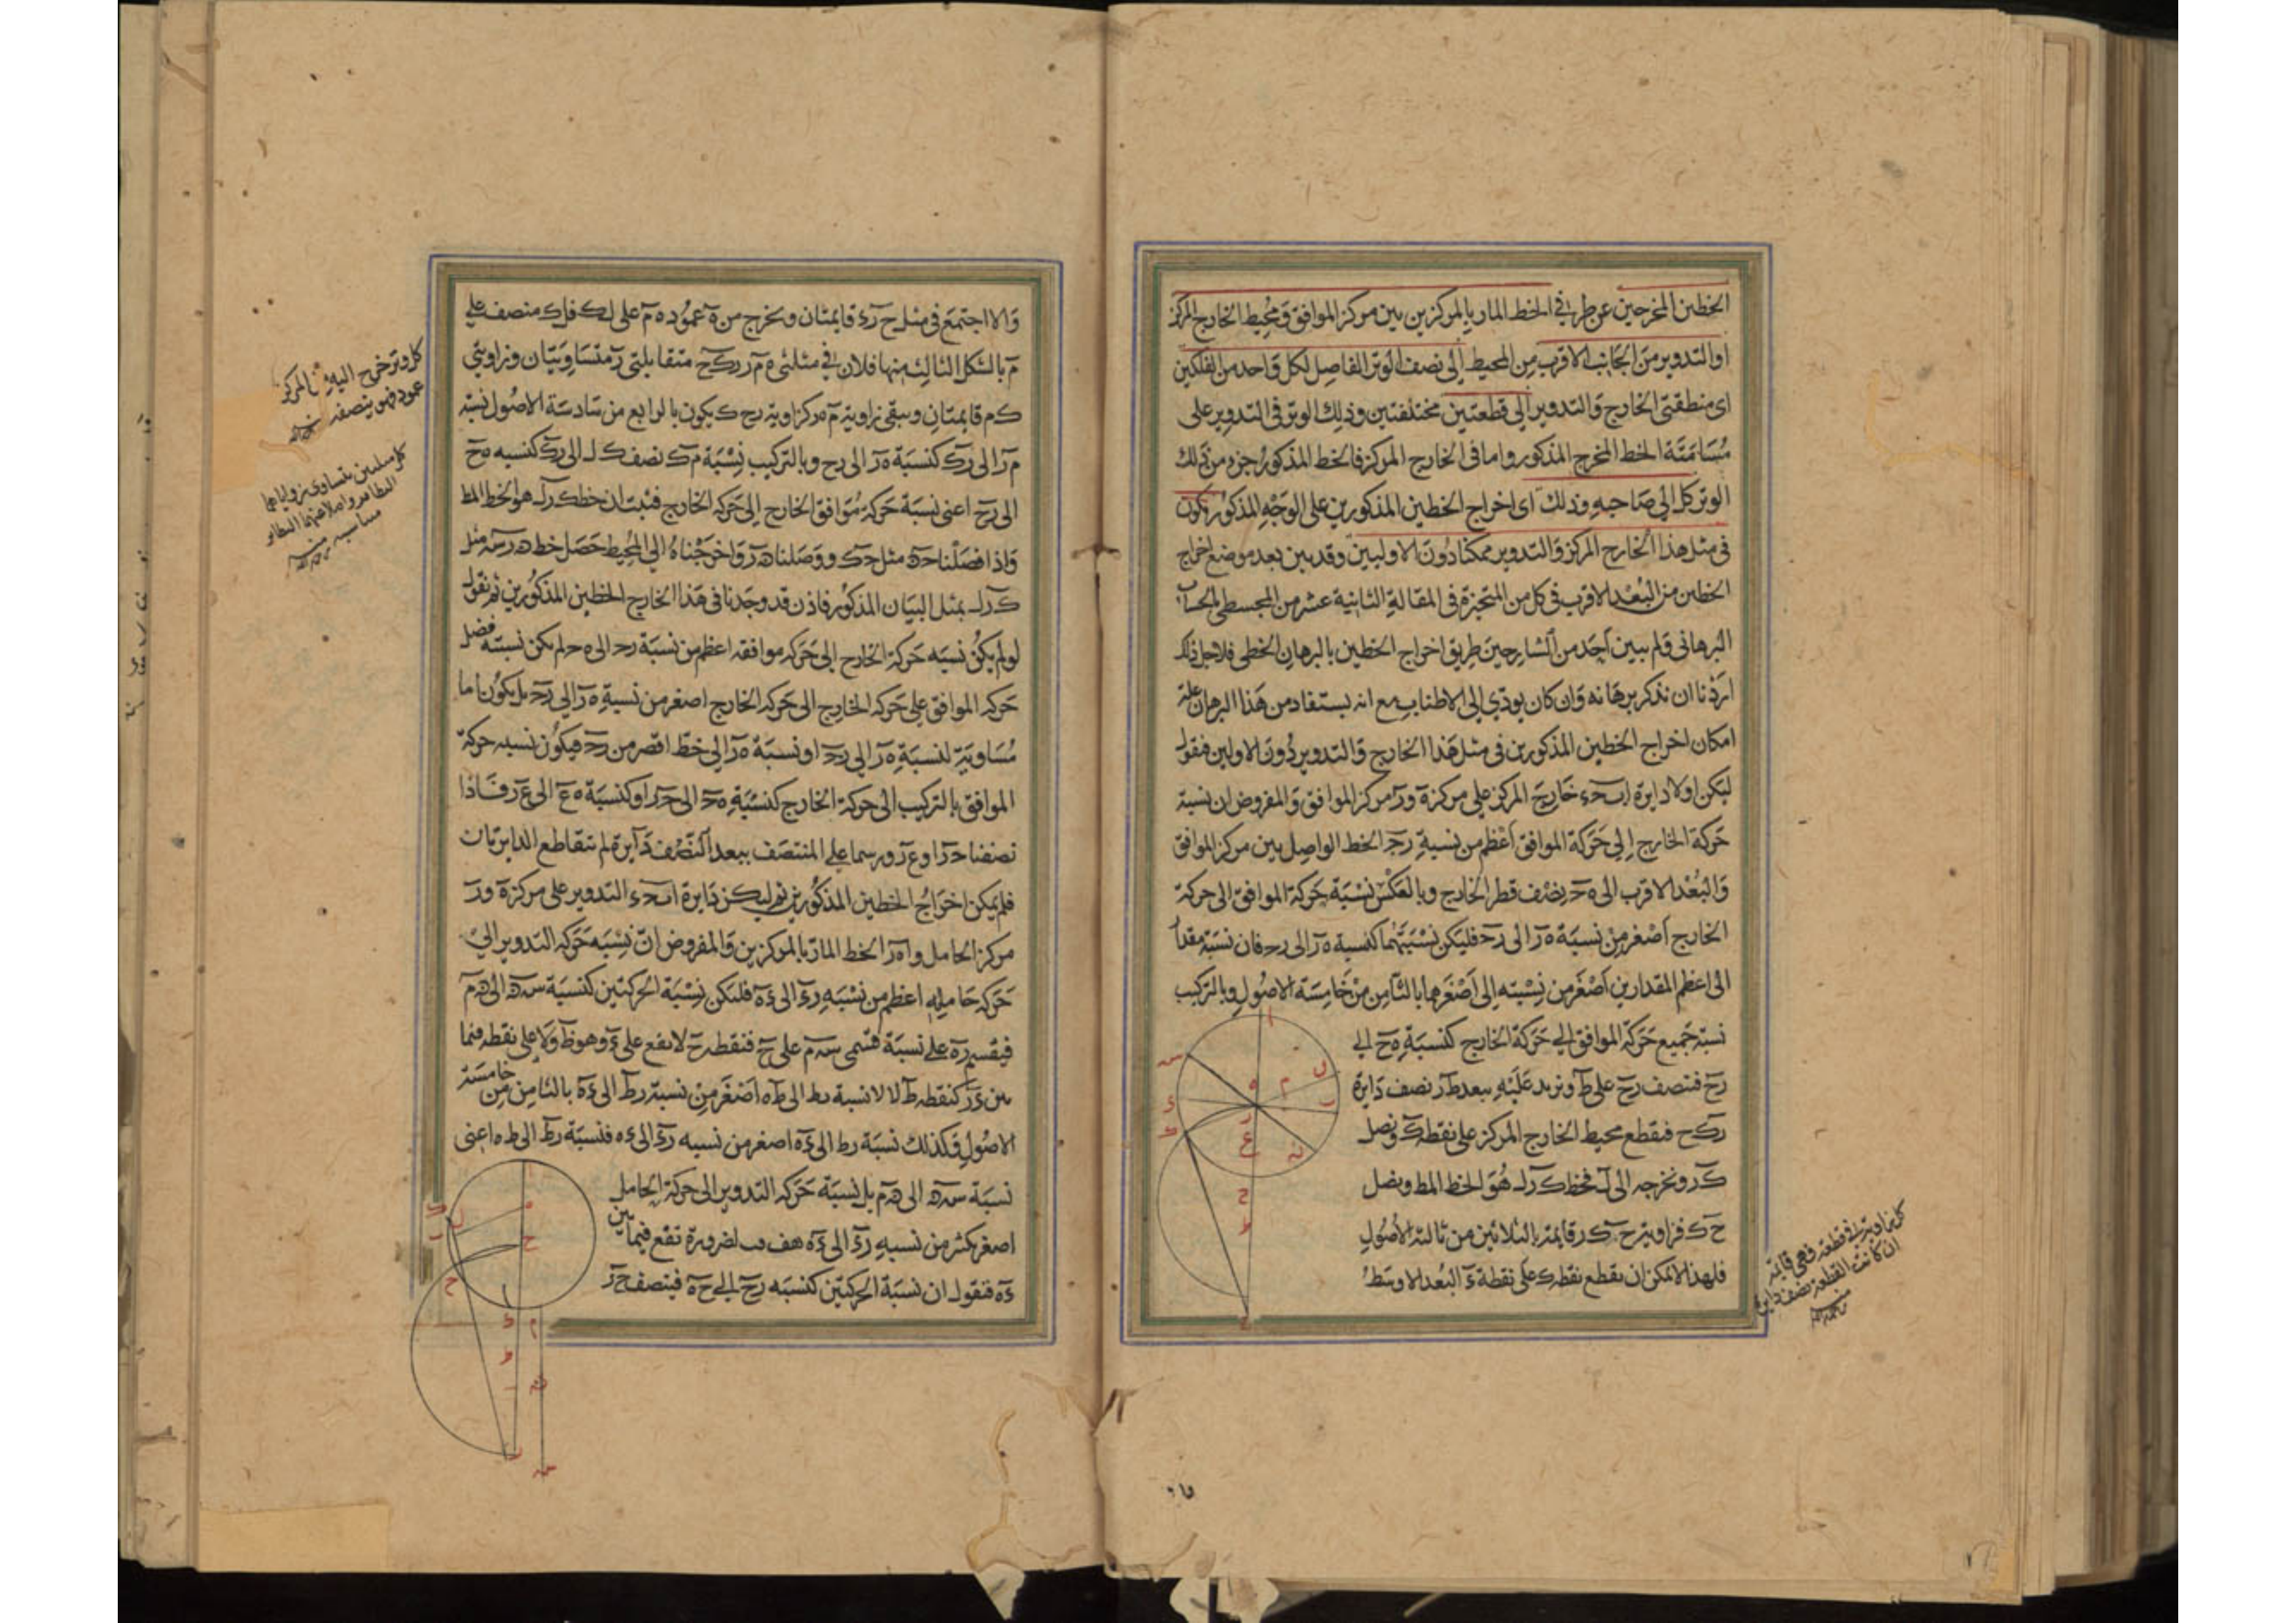 الخطين المخرجين عن طرفي الخط المار بالمركزين بين مركز الموافق ومحيط الخارج المركز
او التدوير من الجانب الاقرب من المحيط الى نصف الوتر الفاصل لكل واحد من الفلكين
اى منطقتى الخارج والتدوير الى قطعتين مختلفتين وذلك الوتر فى التدوير على
مسامتة الخط المخرج المذكور واما فى الخارج المركز فالخط المذكور جزء من ذلك
الوتر كل الى صاحبه وذلك اى اخراج الخطين المذكورين على الوجه المذكور يكون
فى مثل هذا الخارج المركز والتدوير ممكنا دون الاولين وقد بين بعد موضع اخراج
الخطين من البعد الاقرب فى كل من المتحيزة فى المقالة الثانية عشر من المجسطى بالحساب
البرهانى ولم يبين احد من الشارحين طريق اخراج الخطين بالبرهان الخطى فلاجل ذلك
اردنا ان نذكر برهانه وان كان يودي الى الاطناب مع انه يستفاد من هذا البرهان علة
امكان اخراج الخطين المذكورين فى مثل هذا الخارج والتدوير دون الاولين فنقول
ليكن اولا دايرة ابحء خارج المركز على مركز ه ور مركز الموافق والمفروض ان نسبة
حركة الخارج الى حركة الموافق اعظم من نسبة رح الخط الواصل بين مركز الموافق
والبعد الاقرب الى ه ح نصف قطر الخارج وبالعكس نسبة حركة الموافق الى حركة
الخارج اصغر من نسبة ه ر الى رح فليكن نسبتهما كنسبة ه ر الى رح فان نسبة مقدار
الى اعظم المقدارين اصغر من نسبته الى اصغرهما بالثامن من خامسة الاصول وبالتركيب
نسبة جميع حركة الموافق الى حركة الخارج كنسبة ه ح الى
رح فننصف رح على ط ونريد عليه ببعد ط ر نصف دايرة
ر ك ح فتقطع محيط الخارج المركز على نقطة ك ونصل
ك ر ونخرجه الى ل فخط ك ر ل هو الخط المط ونصل
ح ك فزاوية ر ح ك ر قايمة بالثلاثين من ثالثة الاصول
فلهذا لا يمكن ان يقطع نقطة ك على نقطة ء البعد الاوسط
كل زاوية فى قطعة فهى قايمة
ان كانت القطعة نصف دايرة
والا اجتمع فى مثلث ح ر ء قايمتان ونخرج من ه عمود ه م على ل ك فل ك منصف على
م بالشكل الثالث منها فلان فى مثلثى ه م ر ر ك ح متقابلتى ر متساويتان وزاويتى
ك م قايمتان ويبقى زاوية م ه ر كزاوية ر ح ك يكون بالرابع من سادسة الاصول نسبة
م ر الى ر ك كنسبة ه ر الى رح وبالتركيب نسبة م ك نصف ك ل الى ر ك كنسبه ه ح
الى رح اعنى نسبة حركة موافق الخارج الى حركه الخارج فثبت ان خط ك ر ل هو الخط المط
واذا فصلنا مثل ح ك ووصلنا ر واخرجناه الى المحيط حصل خط مثل
ك ر ل بمثل البيان المذكور فاذن قد وجدنا فى هذا الخارج الخطين المذكورين ثم نقول
لو لم يكن نسبه حركة الخارج الى حركه موافقه اعظم من نسبة رح الى ه ح لم يكن نسبته فضل
حركه الموافق على حركه الخارج الى حركه الخارج اصغر من نسبة ه ر الى رح بل يكون اما
مساوية لنسبة ه ر الى رح او نسبة ه ر الى خط اقصر من رح فيكون نسبه حركة
الموافق بالتركيب الى حركة الخارج كنسبة ه ح الى ح ر او كنسبة ه ع الى ع ر فاذا
نصفنا ح ر او ع ر ورسما على المنتصف ببعد النصف دايرة لم تتقاطع الدايرتان
فلم يمكن اخراج الخطين المذكورين ثم ليكن دايرة ابحء التدوير على مركز ه ور
مركز الحامل وا ه ر الخط المار بالمركزين والمفروض ان نسبه حركه التدوير الى
حركه حامله اعظم من نسبه رء الى ء ه فليكن نسبة الحركتين كنسبة س ه الى ه م
فيقسم ر ه على نسبة قسمى س م على ح فنقطة ح لا يقع على ء وهو ظ ولا على نقطه فيما
بين ء ر كنقطه ط لان نسبة ر ط الى ط ه اصغر من نسبة ر ط الى ء ه بالثامن من خامسة
الاصول وكذلك نسبة ر ط الى ء ه اصغر من نسبه رء الى ء ه فنسبة ر ط الى ط ه اعنى
نسبة س ه الى ه م بل نسبة حركه التدوير الى حركة الحامل
اصغر بكثير من نسبه رء الى ء ه هف فبالضرورة تقع فيما بين
ء ه فنقول ان نسبة الحركتين كنسبه رح الى ح ه فينصف ح ر
كل وتر خرج اليه من المركز
عمود فهو ينصفه
كل مثلثين يتساوى زواياهما
النظاير واضلاعهما النظاير
متناسبه